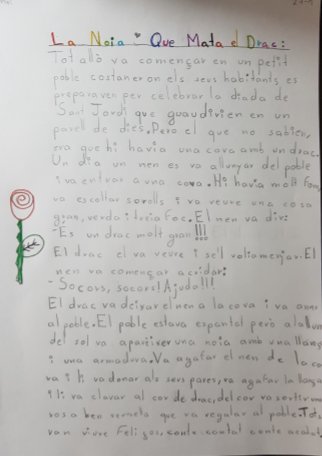 La Noia Que Mata el Drac:
Tot allò va començar en un petit
poble costaner on els seus habitants es
preparaven per celebrar la diada de
Sant Jordi que guaudirien en un
parell de dies. Pero el que no sabien,
era que hi havia una cova amb un drac.
Un dia un nen es va allunyar del poble
i va entrar a una cova. Hi havia molt fum,
va escoltar sorolls i va veure una cosa
gran, verda i treia foc. El nen va dir:
-És un drac molt gran!!!
El drac el va veure i se'l volia menjar. El
nen va començar a cridar:
- Socors, socors! Ajuda!!!
El drac va deixar el nen a la cova i va anar
al poble. El poble estava espantat però a la llum
del sol va apareixer una noia amb una llança
i una armadura. Va agafar el nen de la co
va i li va donar als seus pares, va agafar la llança
i li va clavar al cor de drac, del cor va sortir una
rosa ben vermella que va regalar al poble. Tots
van viure feliços, conte contat conte acabat.